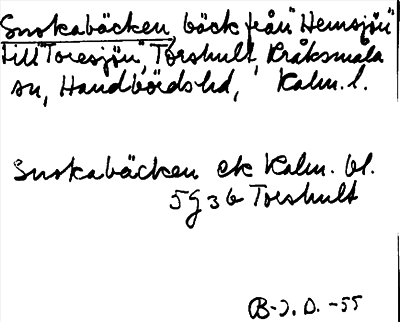 Snokabäcken, bäck från "Hemsjön"
till "Toresjön", Torshult, Kråksmåla
sn, Handbörds hd, Kalm. l.
Snokabäcken ek Kalm. bl.
5G 3b Torshult
B-J. D. -55